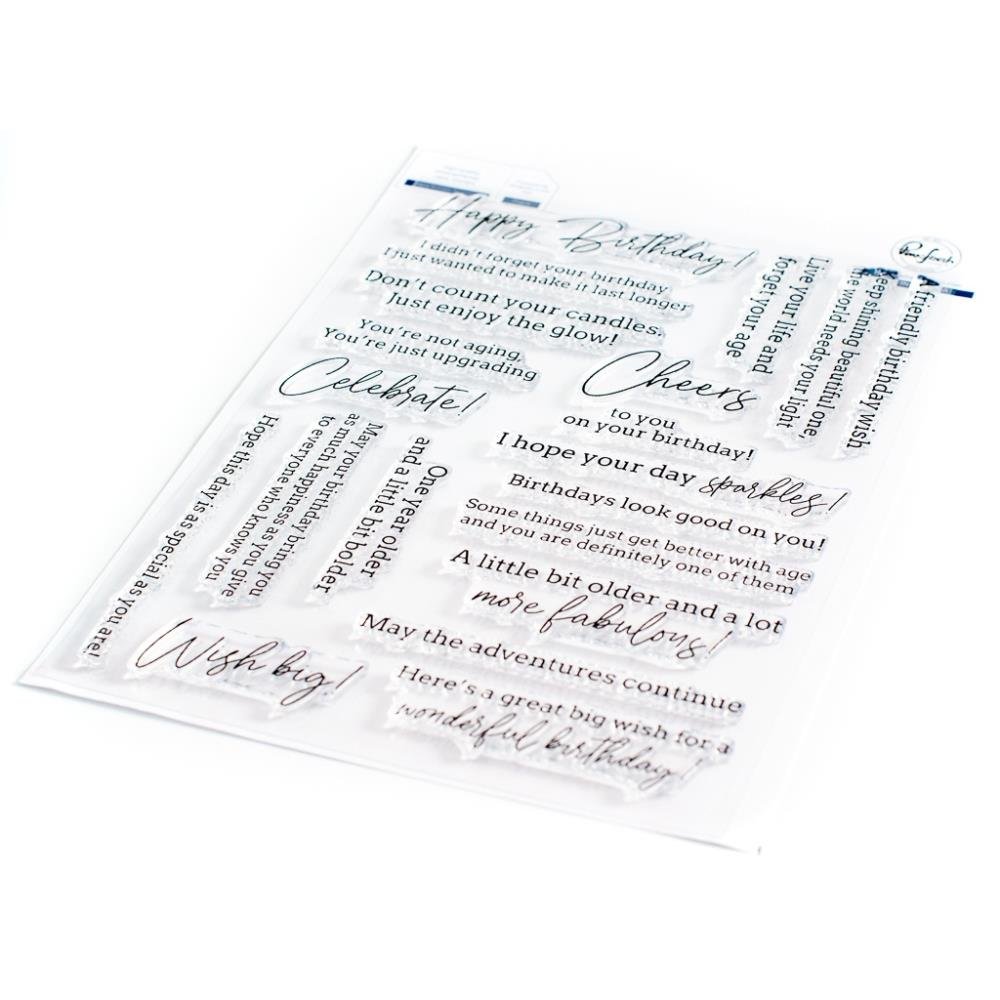 Happy Birthday!
I didn't forget your birthday
I just wanted to make it last longer
Don't count your candles.
Just enjoy the glow!
You're not aging,
You're just upgrading
Celebrate!
Live your life and
forget your age
Keep shining beautiful one,
the world needs your light
A friendly birthday wish
Cheers
to you
on your birthday!
I hope your day sparkles!
Birthdays look good on you!
Some things just get better with age
and you are definitely one of them
A little bit older and a lot
more fabulous!
May the adventures continue
Here's a great big wish for a
wonderful birthday!
One year older
and a little bit bolder
May your birthday bring you
as much happiness as you give
to everyone who knows you
Hope this day is as special as you are!
Wish big!